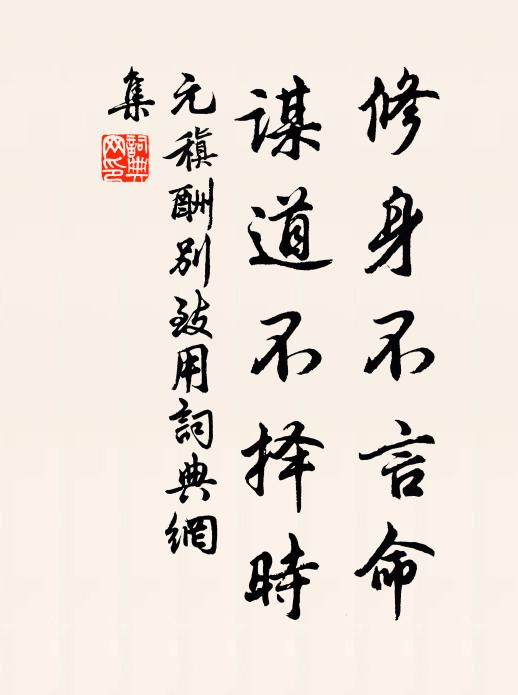 修身不言命
謀道不择時
元稹酬别致用詞典網
集
詞典
网印